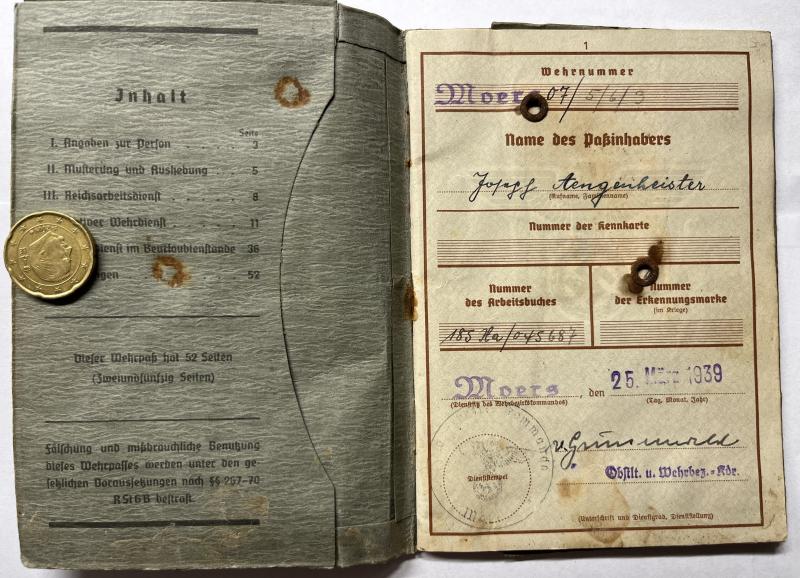 Inhalt
Seite
I. Angaben zur Person 3
II. Musterung und Aushebung 5
III. Reichsarbeitsdienst 8
Wehrdienst 11
im Beurlaubtenstande 36
52
Dieser Wehrpaß hat 52 Seiten
(Zweiundfünfzig Seiten)
Fälschung und mißbräuchliche Benutzung
dieses Wehrpasses werden unter den ge-
setzlichen Voraussetzungen nach §§ 267-70
RStGB bestraft.
1
Wehrnummer
Moers 07/5/6/3
Name des Paßinhabers
Josef Aengenheister
(Rufname, Familienname)
Nummer der Kennkarte
Nummer
des Arbeitsbuches
185 Ha/045687
Nummer
der Erkennungsmarke
(im Kriege)
Moers, den 25. März 1939
(Dienstsitz des Wehrbezirkskommandos) (Tag, Monat, Jahr)
v. Grunewald
Dienststempel
Obstlt. u. Wehrbez.-Kdr.
(Unterschrift und Dienstgrad, Dienststellung)